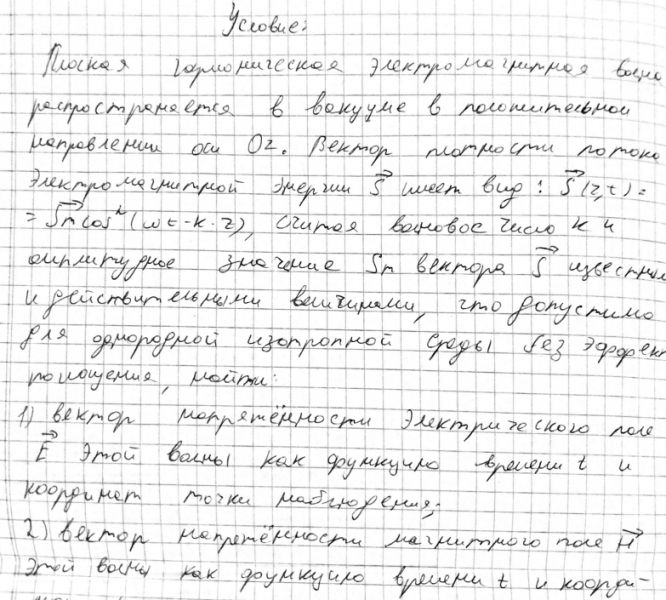 Условие:
Плоская гармоническая электромагнитная волна
распространяется в вакууме в положительном
направлении оси Oz. Вектор плотности потока
электромагнитной энергии S⃗ имеет вид: S⃗(z,t)=
= S⃗m cos²(ωt-k·z), считая волновое число k и
амплитудное значение Sm вектора S⃗ известными
и действительными величинами, что допустимо
для однородной изотропной среды без эффект
поглощения, найти:
1) вектор напряжённости электрического поле
E⃗ этой волны как функцию времени t и
координат точки наблюдения;
2) вектор напряжённости магнитного поле H⃗
этой волны как функцию времени t и коорди-